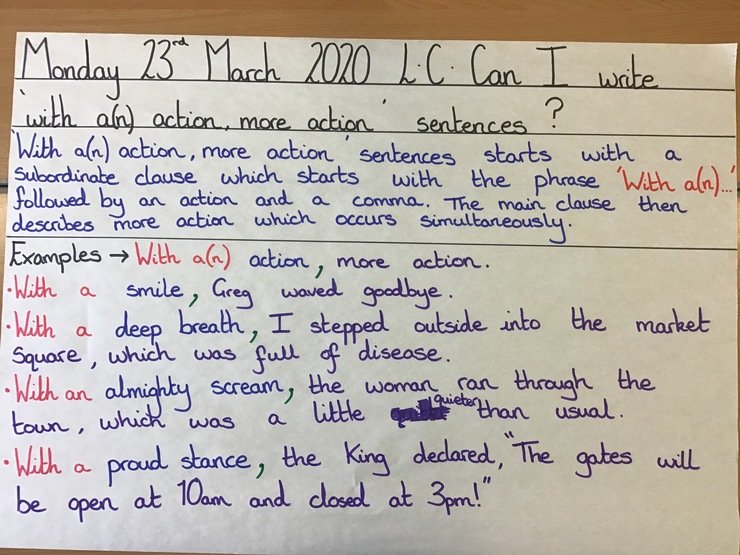 Monday 23rd March 2020 L.C. Can I write
'with a(n) action, more action' sentences ?
'With a(n) action, more action' sentences starts with a
subordinate clause which starts with the phrase 'With a(n)...'
followed by an action and a comma. The main clause then
describes more action which occurs simultaneously.
Examples → With a(n) action, more action.
• With a smile, Greg waved goodbye.
• With a deep breath, I stepped outside into the market
square, which was full of disease.
• With an almighty scream, the woman ran through the
town, which was a little quieter than usual.
• With a proud stance, the King declared, "The gates will
be open at 10am and closed at 3pm!"